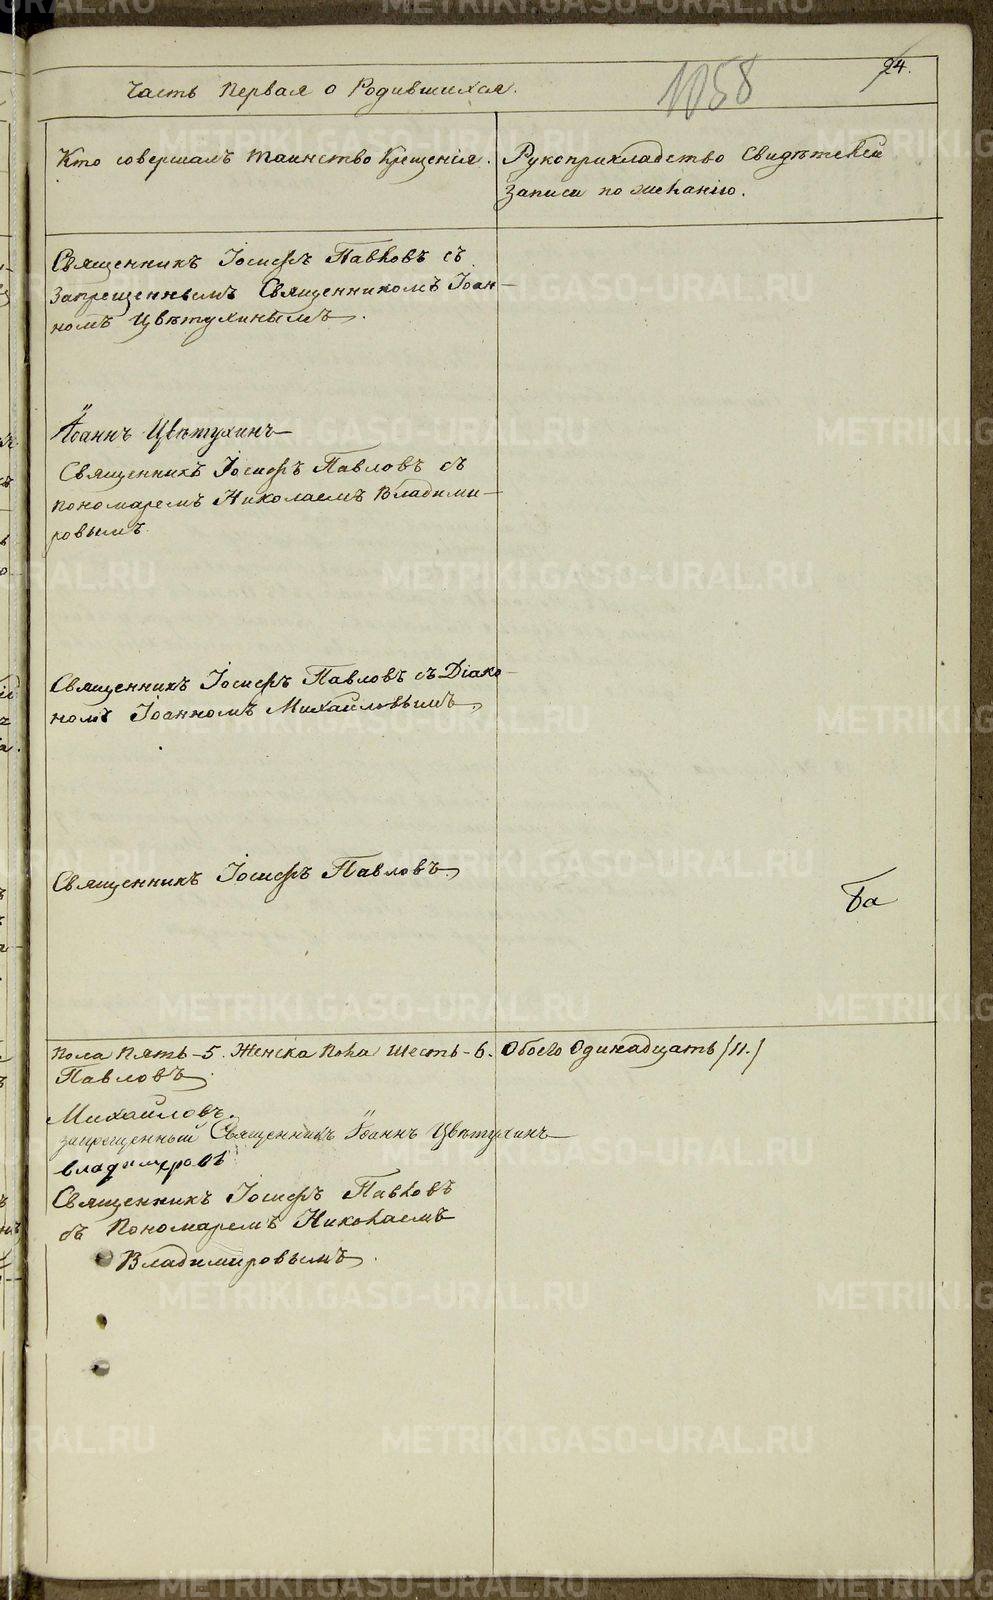 24.
1058
Часть Первая о Родившихся.
Кто совершалъ таинство Крещенія.
Рукоприкладство Свидѣтелей
Записи по желанію.
Священникъ Іосифъ Павловъ съ
Запрещеннымъ Священникомъ Іоан-
номъ Цвѣтухинымъ.
Іоаннъ Цвѣтухинъ
Священникъ Іосифъ Павловъ съ
пономаремъ Николаемъ Владими-
ровымъ.
Священникъ Іосифъ Павловъ съ Діако-
номъ Іоанномъ Михайловымъ,
Священникъ Іосифъ Павловъ,
ба
Пола Пять-5. Женска Пола Шесть-6. Обоего Одинадцать (11.)
Павловъ.
Михайловъ.
запрещенный Священникъ Іоаннъ Цвѣтухинъ
Владимировъ
Священникъ Іосифъ Павловъ
съ Пономаремъ Николаемъ
Владимировымъ.
METRIKI.GASO-URAL.RU